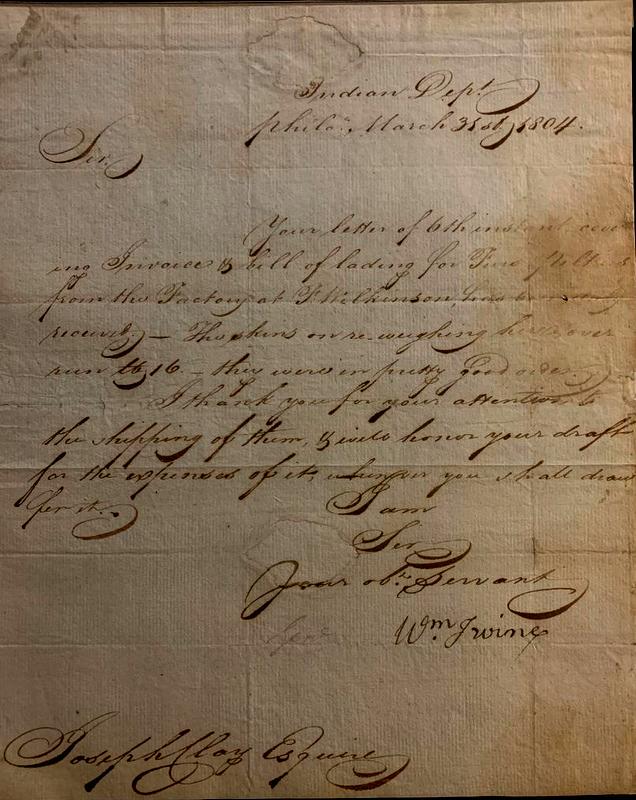 Indian Dept.
Phila. March 31st, 1804.
Sir,
Your letter of 6th instant cover
ing Invoice & bill of lading for Furs
from the Factory at F. Wilkinson, has been
received, — The skins on re-weighing here over
run lb 16. — they were in pretty good order.
I thank you for your attention to
the shipping of them, & will honor your draft
for the expenses of it, whenever you shall draw
for it.
I am
Sir
Your obt. Servant
Wm. Irvine
Joseph Clay Esquire